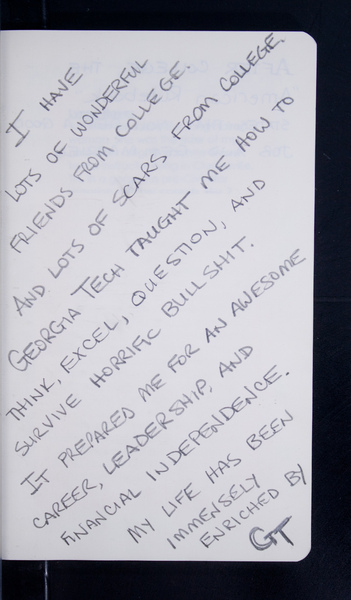 I HAVE
LOTS OF WONDERFUL
FRIENDS FROM COLLEGE
AND LOTS OF SCARS FROM COLLEGE.
GEORGIA TECH TAUGHT ME HOW TO
THINK, EXCEL, QUESTION, AND
SURVIVE HORRIFIC BULLSHIT.
IT PREPARED ME FOR AN AWESOME
CAREER, LEADERSHIP, AND
FINANCIAL INDEPENDENCE.
MY LIFE HAS BEEN
IMMENSELY
ENRICHED BY
GT